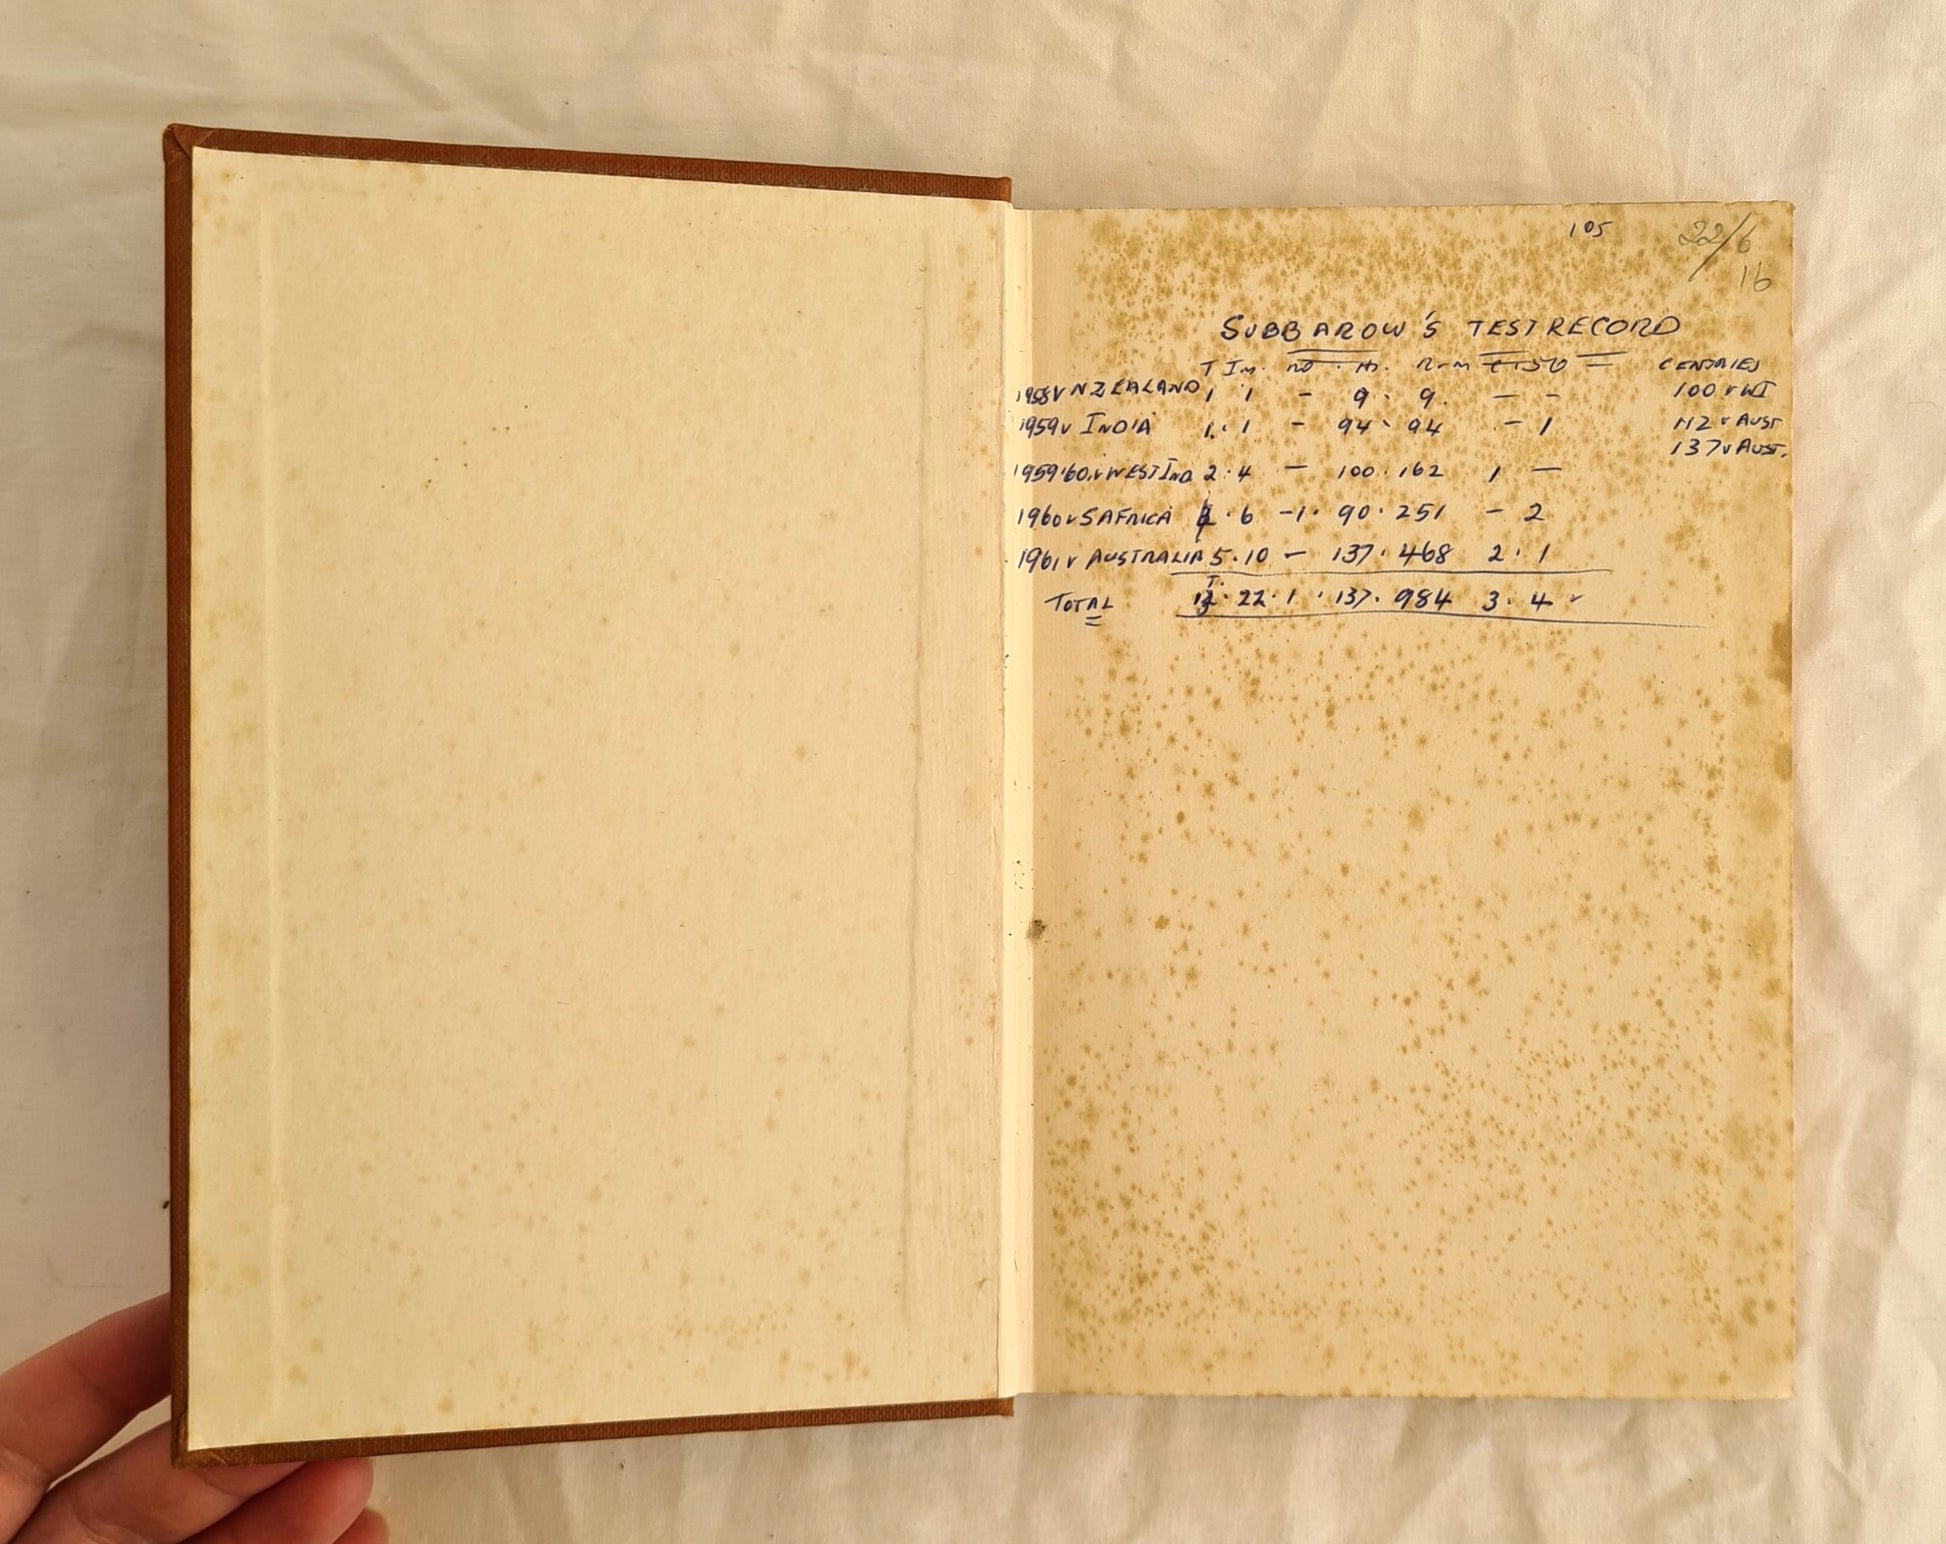 105
22/6
16
SUBBAROW'S TEST RECORD
T In. no. Hs. Run C 50 CENTRIES
1958 v N ZEALAND 1 1 - 9. 9. - - 100 v WI
1959 v INDIA 1. 1 - 94. 94 - 1 112 v AUST
137 v AUST.
1959.60. v WEST IND 2.4 - 100.162 1 -
1960 v S AFRICA 4.6 -1. 90.251 - 2
1961 v AUSTRALIA 5.10 - 137.468 2.1
T.
TOTAL 13.22.1.137.984 3.4